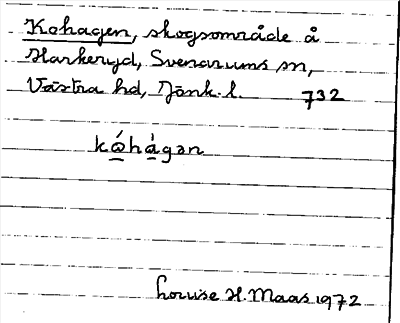 Kohagen, skogsområde å
Harkeryd, Svenarums sn,
Västra hd, Jönk. l. 732
kώhàgən
Louise H. Maas 1972